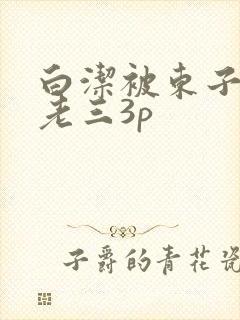 白洁被东子
老三3p
子爵的青花瓷